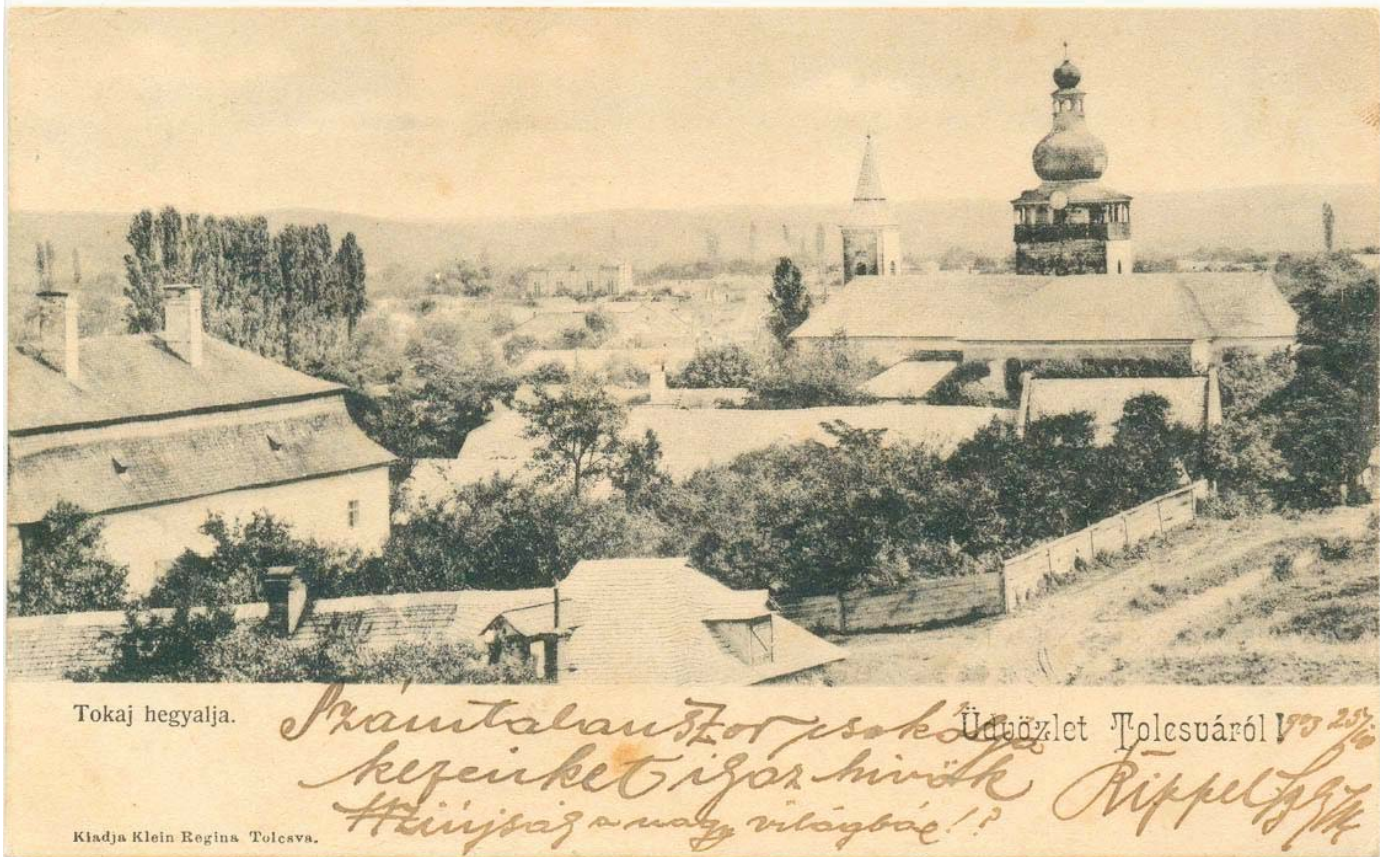 Tokaj hegyalja.
Üdvözlet Tolcsváról!
Számtalanszor csókolja
kezeinket igaz hivök
ujság a nagy világból!?
Rippel
Kiadja Klein Regina Tolcsva.